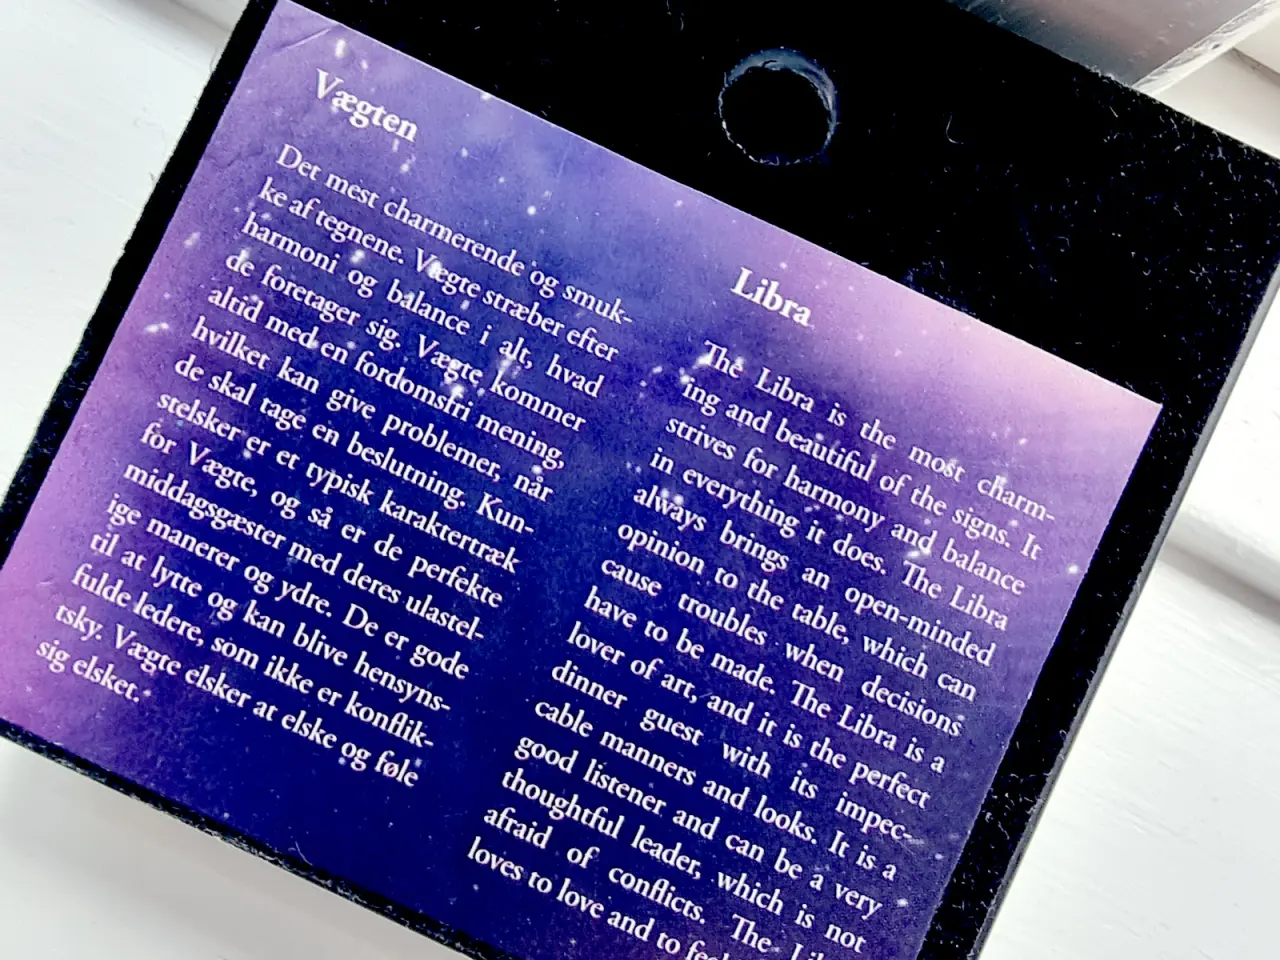 Vægten
Det mest charmerende og smuk-
ke af tegnene. Vægte stræber efter
harmoni og balance i alt, hvad
de foretager sig. Vægte kommer
altid med en fordomsfri mening,
hvilket kan give problemer, når
de skal tage en beslutning. Kun-
stelsker er et typisk karaktertræk
for Vægte, og så er de perfekte
middagsgæster med deres ulastel-
ige manerer og ydre. De er gode
til at lytte og kan blive hensyns-
fulde ledere, som ikke er konflik-
tsky. Vægte elsker at elske og føle
sig elsket.
Libra
The Libra is the most charm-
ing and beautiful of the signs. It
strives for harmony and balance
in everything it does. The Libra
always brings an open-minded
opinion to the table, which can
cause troubles when decisions
have to be made. The Libra is a
lover of art, and it is the perfect
dinner guest with its impec-
cable manners and looks. It is a
good listener and can be a very
thoughtful leader, which is not
afraid of conflicts. The
loves to love and to